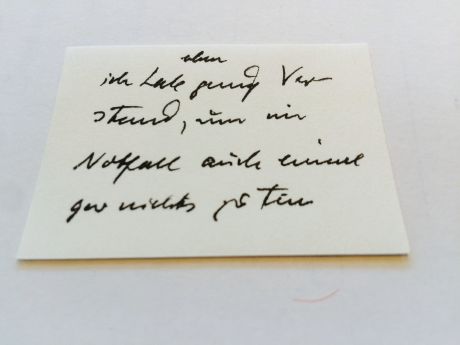 eben
ich habe genug Ver-
stand, um im
Notfall auch einmal
gar nichts zu tun